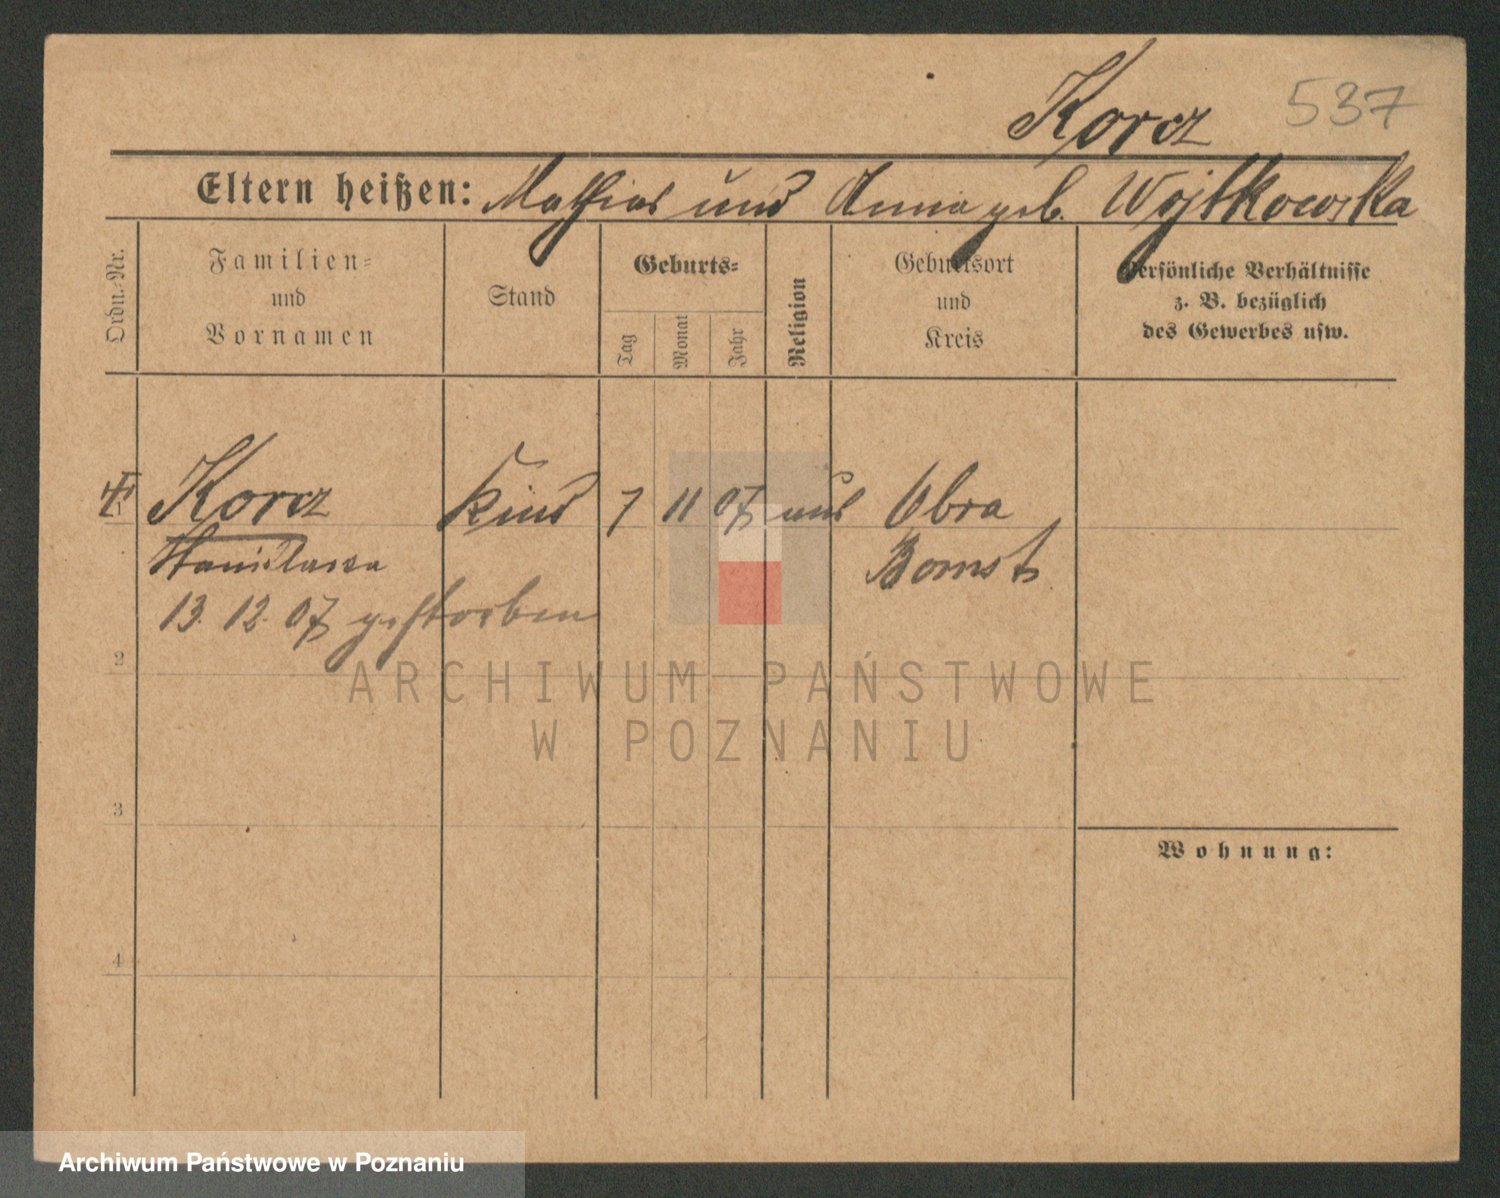 Korcz 537
Eltern heißen: Mathias und Anna geb. Wojtkowska
Ordn.-Nr.
Familien-
und
Vornamen
Stand
Geburts-
Tag
Monat
Jahr
Religion
Geburtsort
und
Kreis
Persönliche Verhältnisse
z. B. bezüglich
des Gewerbes usw.
1 Korcz Kind 7 11 07 Obra
Stanislawa Bomst
13. 12. 07 gestorben
2
ARCHIWUM PAŃSTWOWE
W POZNANIU
3
Wohnung:
4
Archiwum Państwowe w Poznaniu